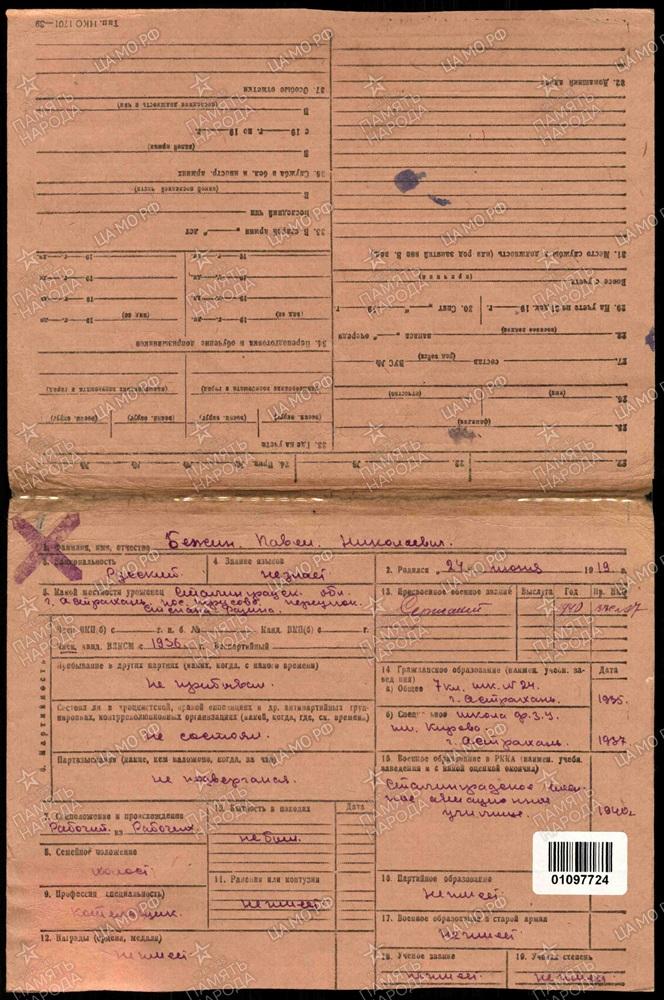 Тип. НКО 1701—39
32. Домашний адрес
31. Место службы и должность (или род занятий вне В. вед.
Вовсе с учета
(причина)
29. На учете на 21 дек. 19 г.
30. Снят " " 19 г.
28. запаса очереди
27. состав ВУС №
(род войск)
26.
(имя) (отчество)
25.
(фамилия)
37. Особые отметки
(последняя должность и чин)
В
с 19 г. по 19 г.
В
(какой армии)
36. Служба в бел. и иностр. армиях
(какой последней части)
В
последний чин
35. В старой армии " " лет
34. Переподготовка и обучение допризывников
33. Где на учете
1. Фамилия, имя, отчество Бежин. Павел. Николаевич.
3. Национальность Русский.
4. Знание языков незнает.
2. Родился „24“ июня 1919 г.
5. Какой местности уроженец Сталинградск. обл.
г. Астрахань пос. Трусово, переулок.
Степана Разина.
13. Присвоенное военное звание
Выслуга
Год
Пр. НКО
Сержант
940
Член ВКП(б) с г. п. б. № Канд. ВКП(б) с г.
Член, канд. ВЛКСМ с 1936 г. Беспартийный
6. Партийность
Пребывание в других партиях (каких, когда, с какого времени)
не прибывал.
Состоял ли в троцкистской, правой оппозициях и др. антипартийных группировках, контрреволюционных организациях (какой, когда, где, ск. времени)
не состоял.
Партвзыскания (какие, кем наложено, когда, за что)
не подвергался.
14 Гражданское образование (наимен. учебн. заведения)
Дата
а) Общее 7 кл. шк. № 24.
г. Астрахань.
1935.
б) Специальное школа ф.з.у.
им. Кирова
г. Астрахань
1937
15 Военное образование в РККА (наимен. учебн. заведения и с какой оценкой окончил)
Сталинградское
авиационное
училище.
1940г.
7. Соцположение и происхождение
Рабочий. из Рабочих.
8. Семейное положение
холост
9. Профессия (специальность)
12. Награды (ордена, медали)
Неимеет
10. Бытность в походах
Дата
небыл.
11. Ранения или контузии
неимеет
16. Партийное образование
Неимеет
17. Военное образование в старой армии
Неимеет
18. Ученое звание
неимеет.
19. Ученая степень
неимеет
01097724
ПАМЯТЬ НАРОДА
ЦА МО РФ